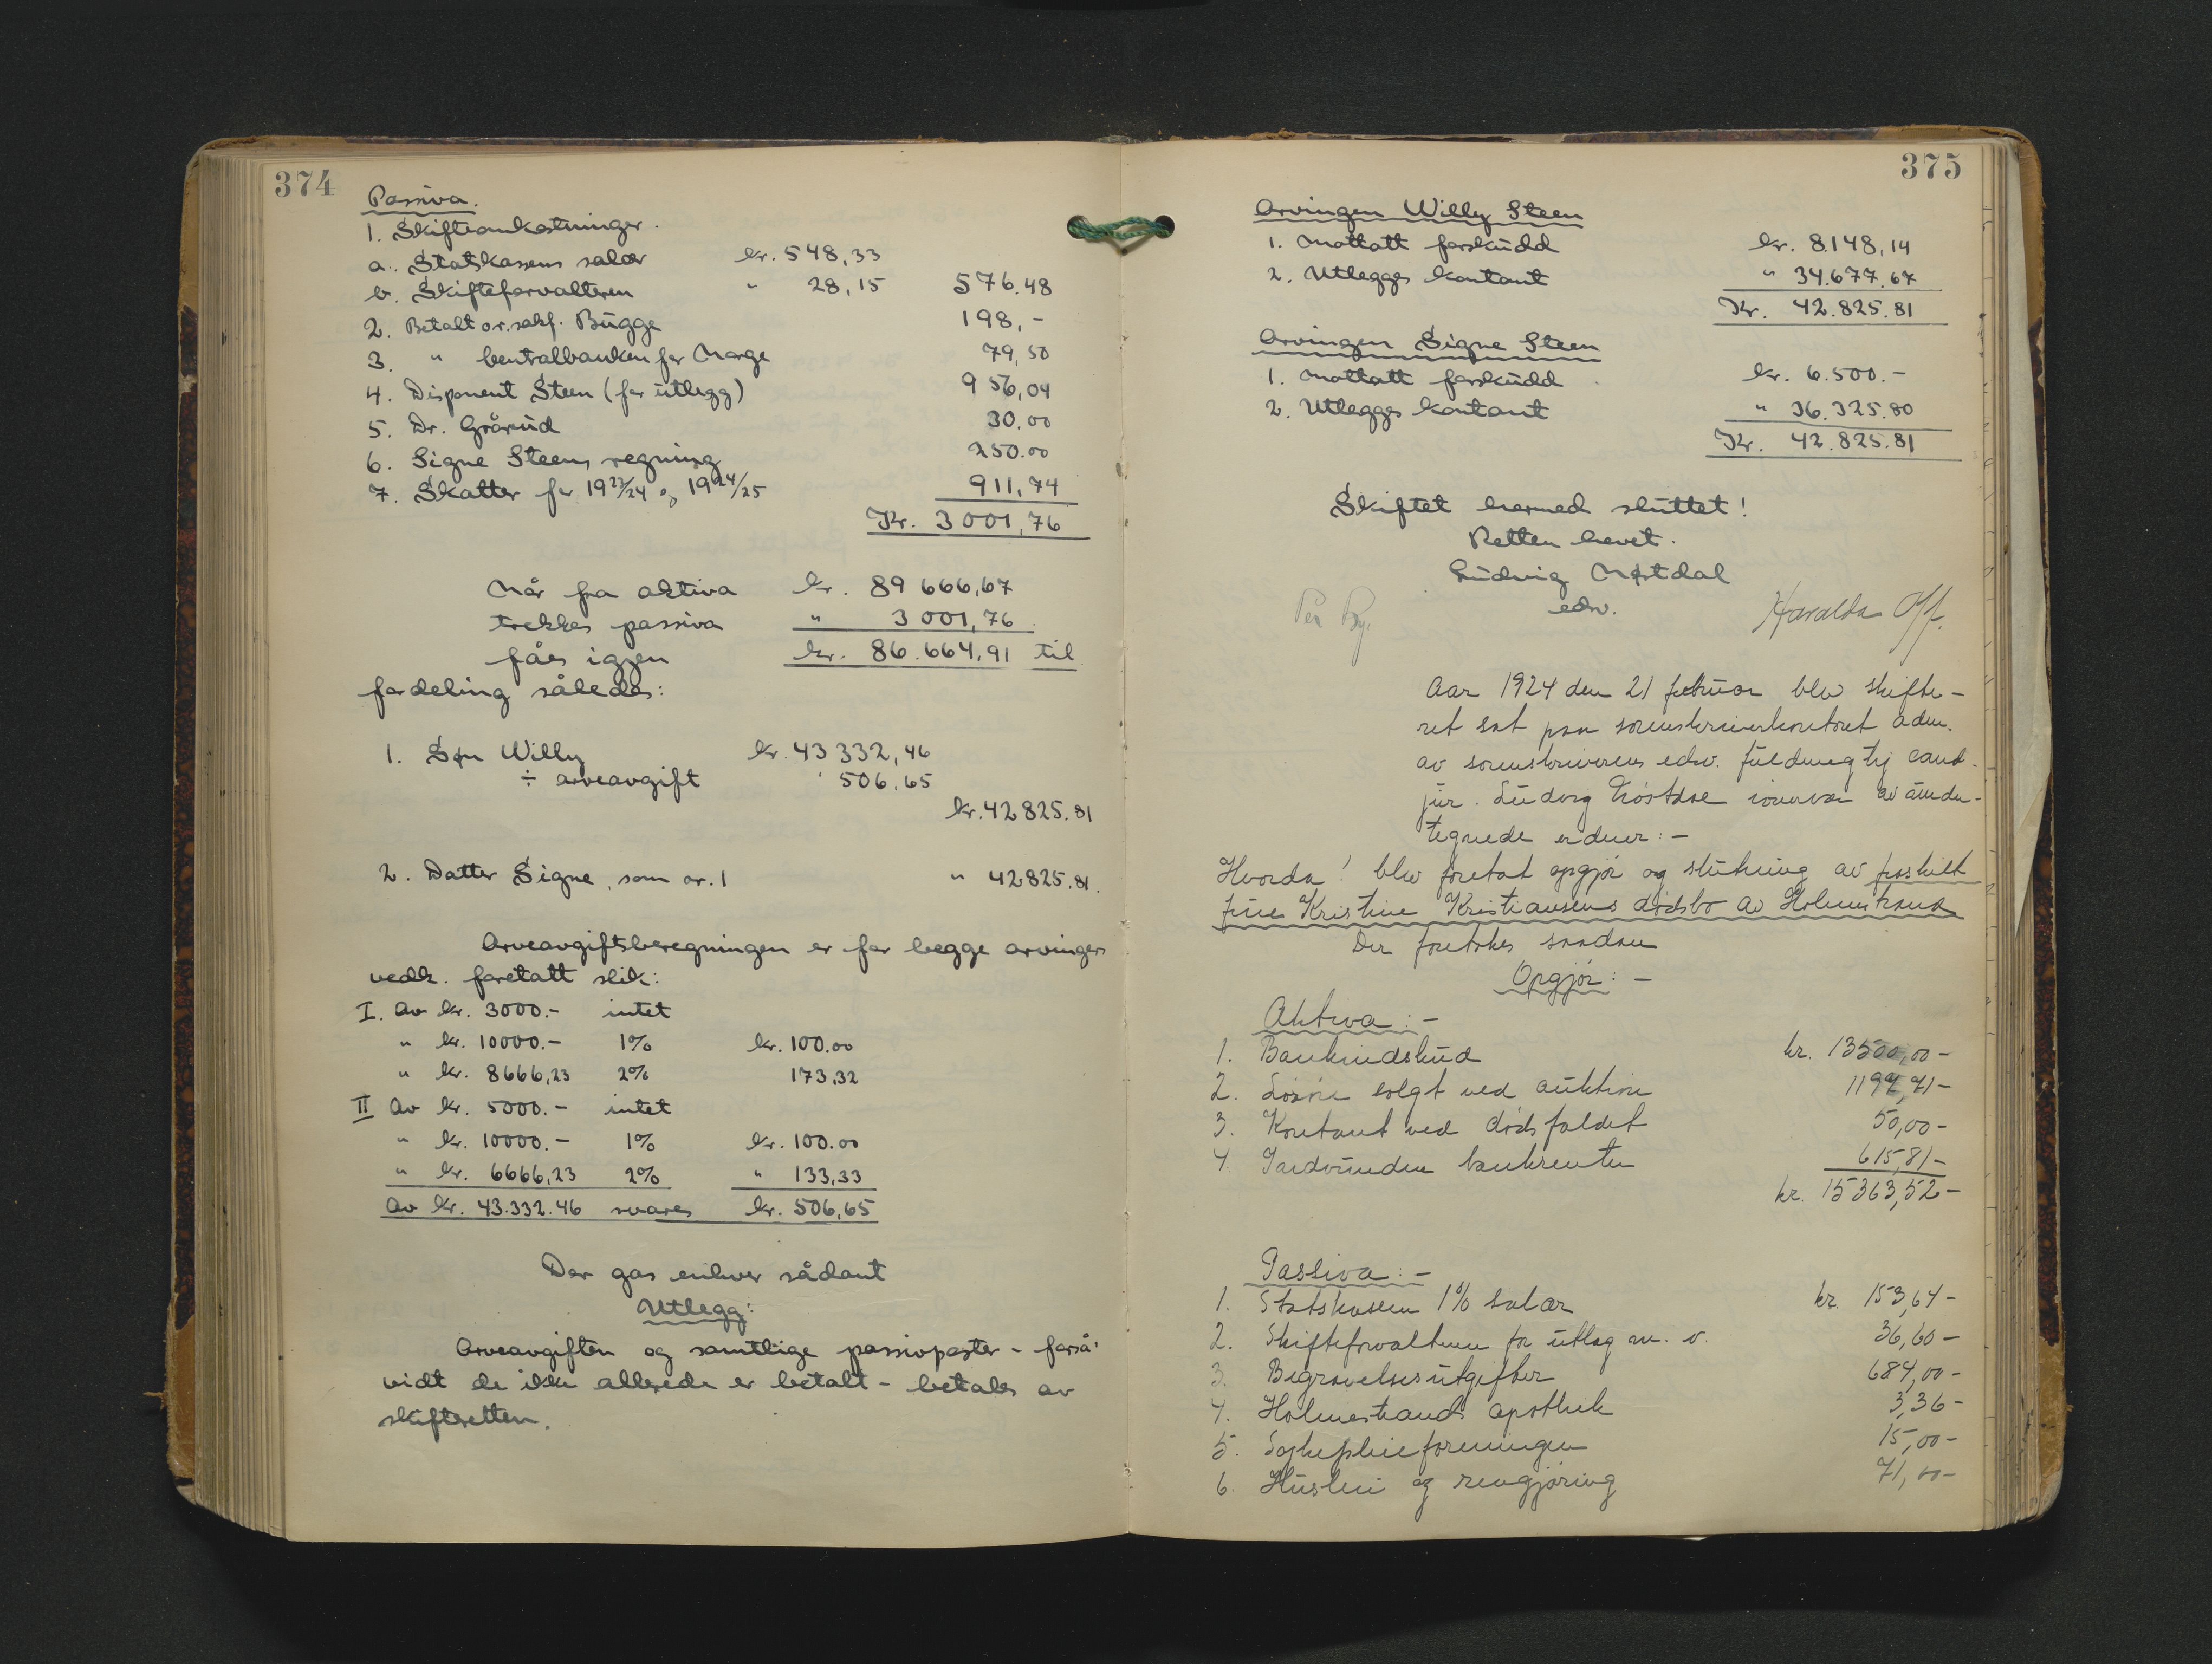 374
Passiva.
1. Skifteomkostninger.
a. Statskassens salær kr. 548,33
b. Skifteforvalteren " 28,15 576.48
2. Betalt o.r.sakf. Bugge 198,-
3. " Centralbanken for Norge 79,50
4. Disponent Steen (for utlegg) 956,04
5. Dr. Grårud 30.00
6. Signe Steens regning 250.00
7. Skatter for 1923/24 og 1924/25 911,74
Kr. 3001,76
Når fra aktiva kr. 89 666,67
trekkes passiva " 3 001,76
fåes igjen kr. 86.664,91 til
fordeling således:
1. Søn Willy kr. 43 332,46
÷ arveavgift 506.65
kr. 42825.81
2. Datter Signe, som nr. 1 " 42825.81.
Arveavgiftsberegningen er for begge arvinger
vedk. foretatt slik:
I. Av kr. 3000.- intet
" kr. 10000.- 1% kr. 100.00
" kr. 8666,23 2% 173,32
II Av kr. 5000.- intet
" kr. 10000.- 1% kr. 100.00
" kr. 6666,23 2% " 133,33
Av kr. 43.332.46 svares kr. 506,65
Der gas enhver sådant
Utlegg:
Arveavgiften og samtlige passivposter - forså-
vidt de ikke allerede er betalt - betales av
skifteretten.
375
Arvingen Willy Steen
1. Mottatt forskudd kr. 8.148,14
2. Utlegges kontant " 34.677.67
Kr. 42.825.81
Arvingen Signe Steen
1. Mottatt forskudd kr. 6.500.-
2. Utlegges kontant " 36.325.80
Kr. 42.825.81
Skiftet hermed sluttet!
Retten hevet.
Ludvig Nøstdal
edsv.
Aar 1924 den 21 februar blev skifte-
ret sat paa sorenskriverkontoret adm.
av sorenskriverens edsv. fuldmegtig cand.
jur. Ludvig Nøstdal i overvær av under-
tegnede vidner: -
Hvorda! blev foretat opgjør og slutning av fraskilt
frue Kristine Kristiansens dødsbo av Holmestrand
Der foretokes saadan
Opgjør: -
Aktiva: -
1. Bankindskud kr. 13500,00-
2. Løsøre solgt ved auktion 1197,71-
3. Kontant ved dødsfaldet 50,00-
4. Indvunden bankrenter 615,81-
kr. 15363,52-
Passiva: -
1. Statskassen 1% salær kr. 153,64-
2. Skifteforvalteren for utlæg m. v. 36,60-
3. Begravelsesutgifter 684,00-
4. Holmestrands apothek 3,36-
5. Sykepleieforeningen 15,00-
6. Husleie og rengjøring 71,00-